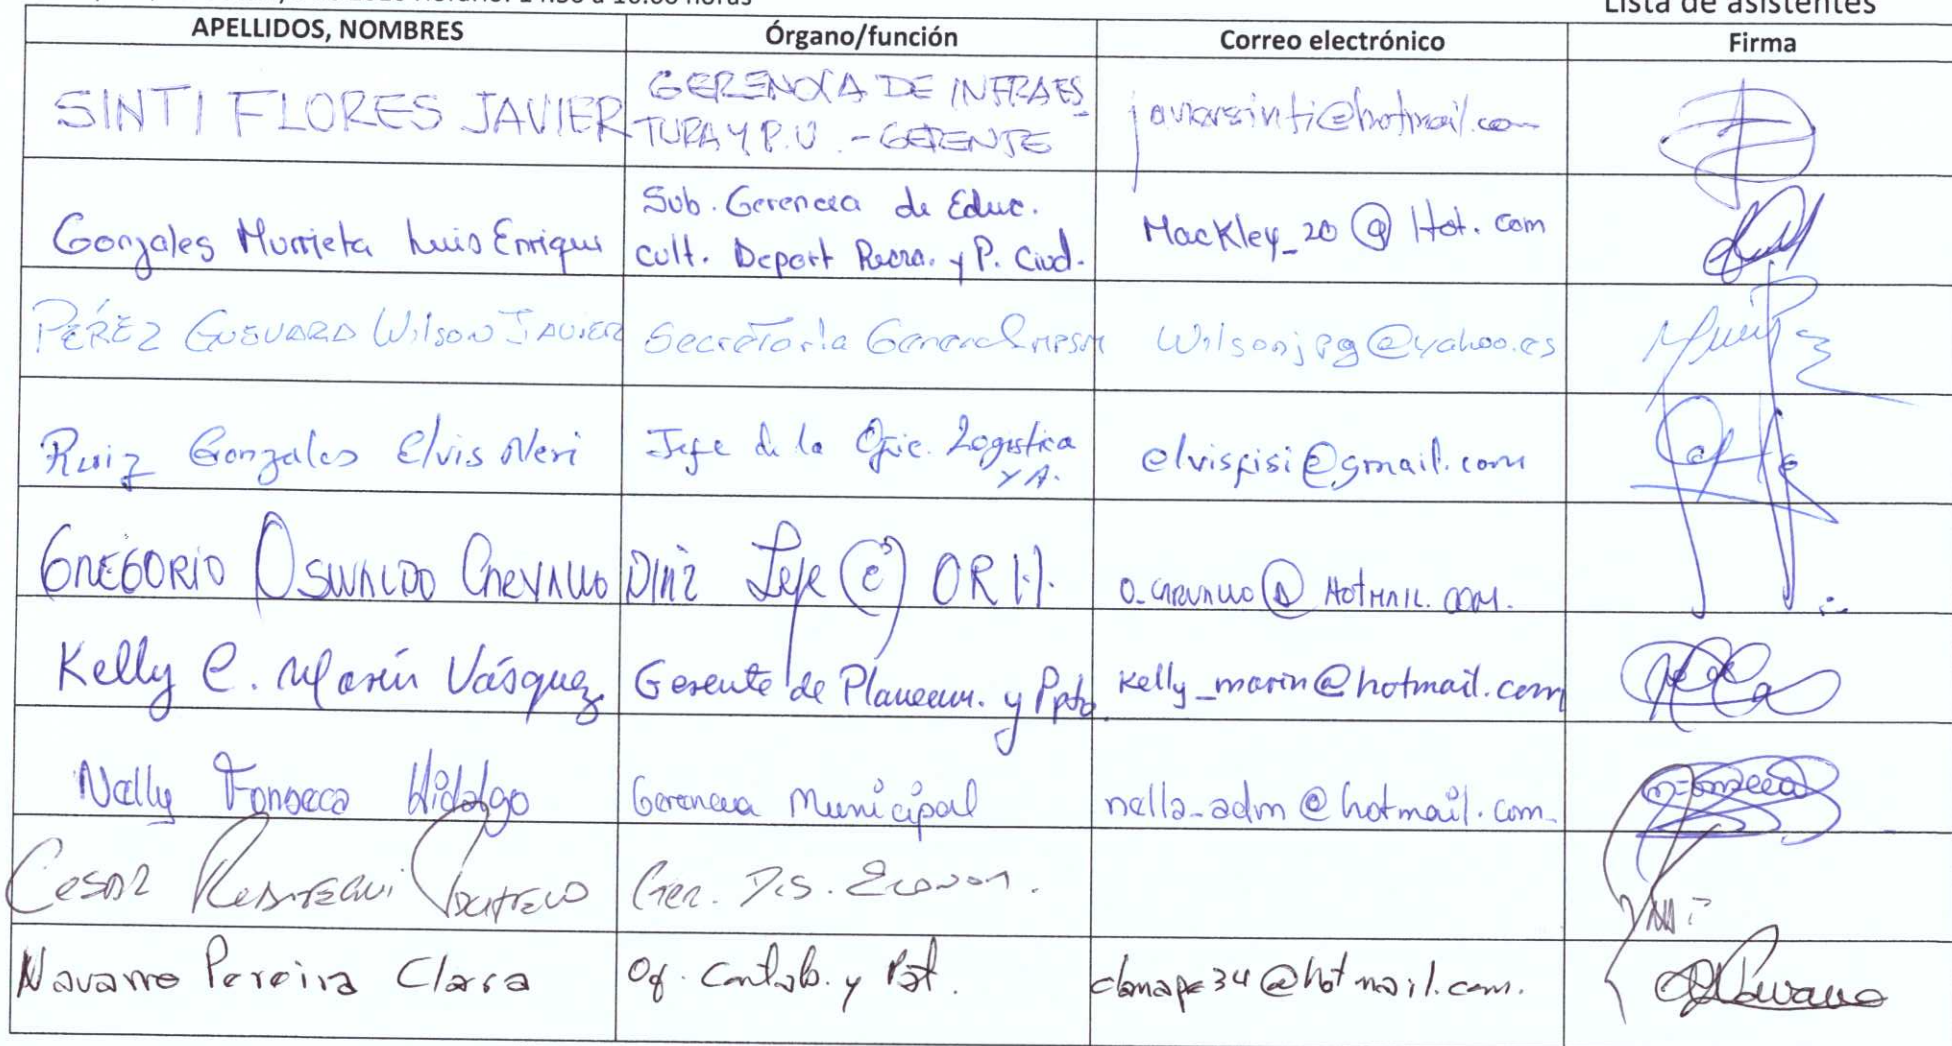 Lista de asistentes
APELLIDOS, NOMBRES Órgano/función Correo electrónico Firma
SINTI FLORES JAVIER
GERENCIA DE INFRAES
TURA Y P.U. - GERENTE
javiersinti@hotmail.com
Gonzales Murrieta Luis Enrique
Sub. Gerencia de Educ.
Cult. Deport Recra. y P. Ciud.
Mackley_20 @ Hot. com
PÉREZ GUEVARA Wilson JAVIER
Secretaría General MPSM
Wilsonjpg@yahoo.es
Ruiz Gonzales Elvis Neri
Jefe de la Ofic. Logistica
Y A.
elvisfisi@gmail.com
GREGORIO OSWALDO DIAZ Jefe (e) ORH.
@ HOTMAIL. COM.
Kelly C. Marín Vásquez
Gerente de Planeam. y Ppto.
Kelly_marin@hotmail.com
Nelly Fonseca Hidalgo
Gerencia Municipal
nella_adm@hotmail.com.
Cesar
Ger. Econom.
Navarro Pereira Clara
Of. Contab. y Pat.
clanape34@hotmail.com.